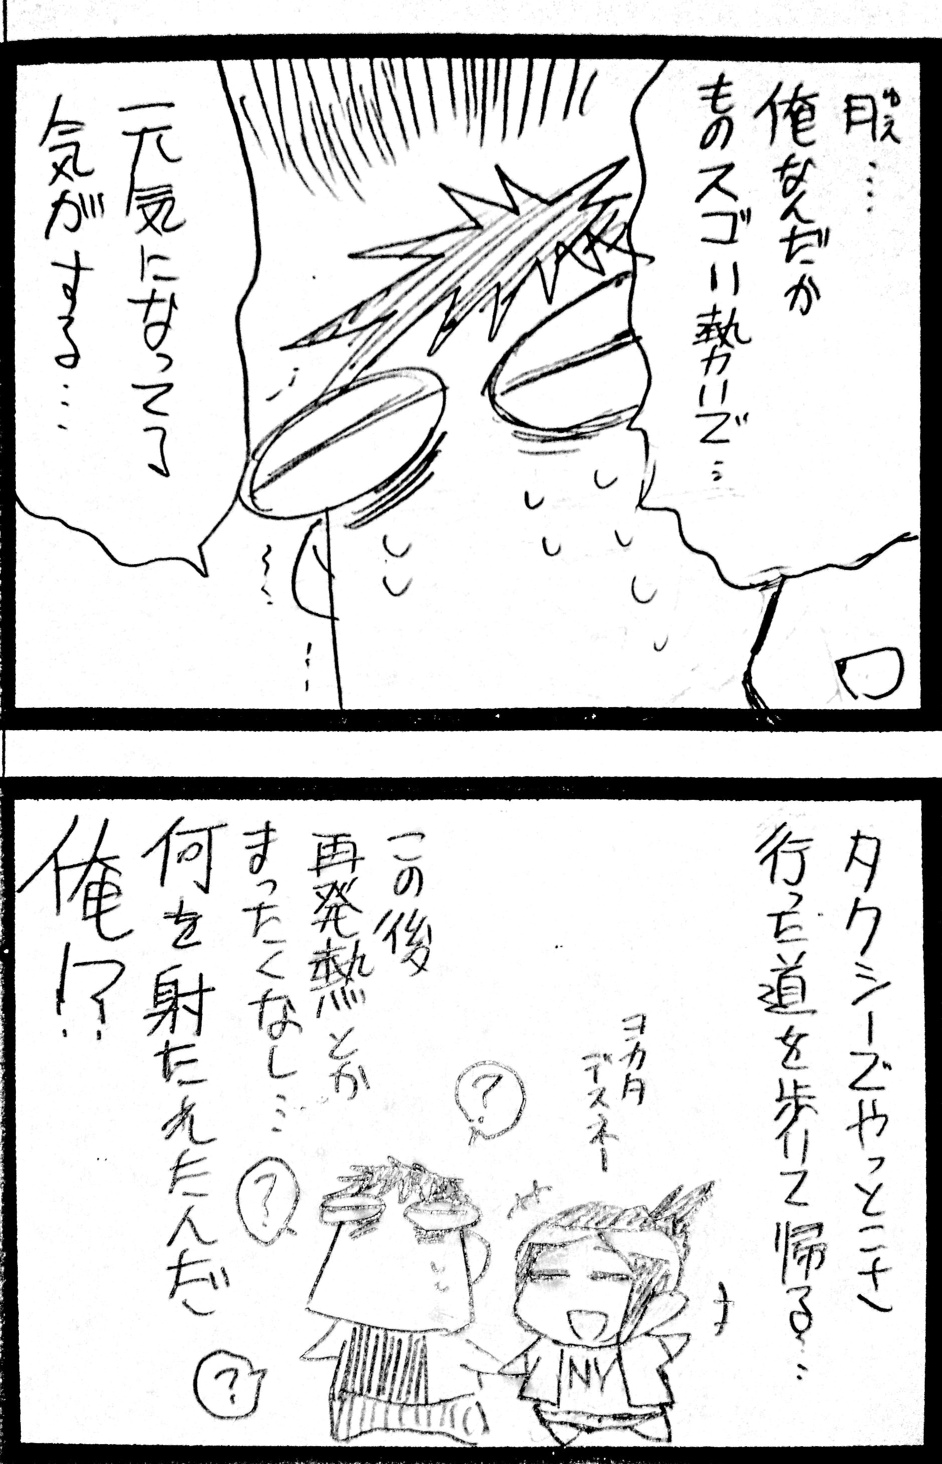 月ェ…
ゆえ
俺なんだか
ものスゴイ熱いで…
元気になってる
気がする…
タクシーでやっとこさ
行った道を歩いて帰る…
ヨカタ
デスネー
?
この後
再発熱とか
まったくなし…
?
何を射たれたんだ
俺!?
?
NY